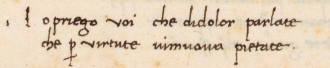 · I o priego voi che didolor parlate
che ꝑ virtute vinuova pietate ·